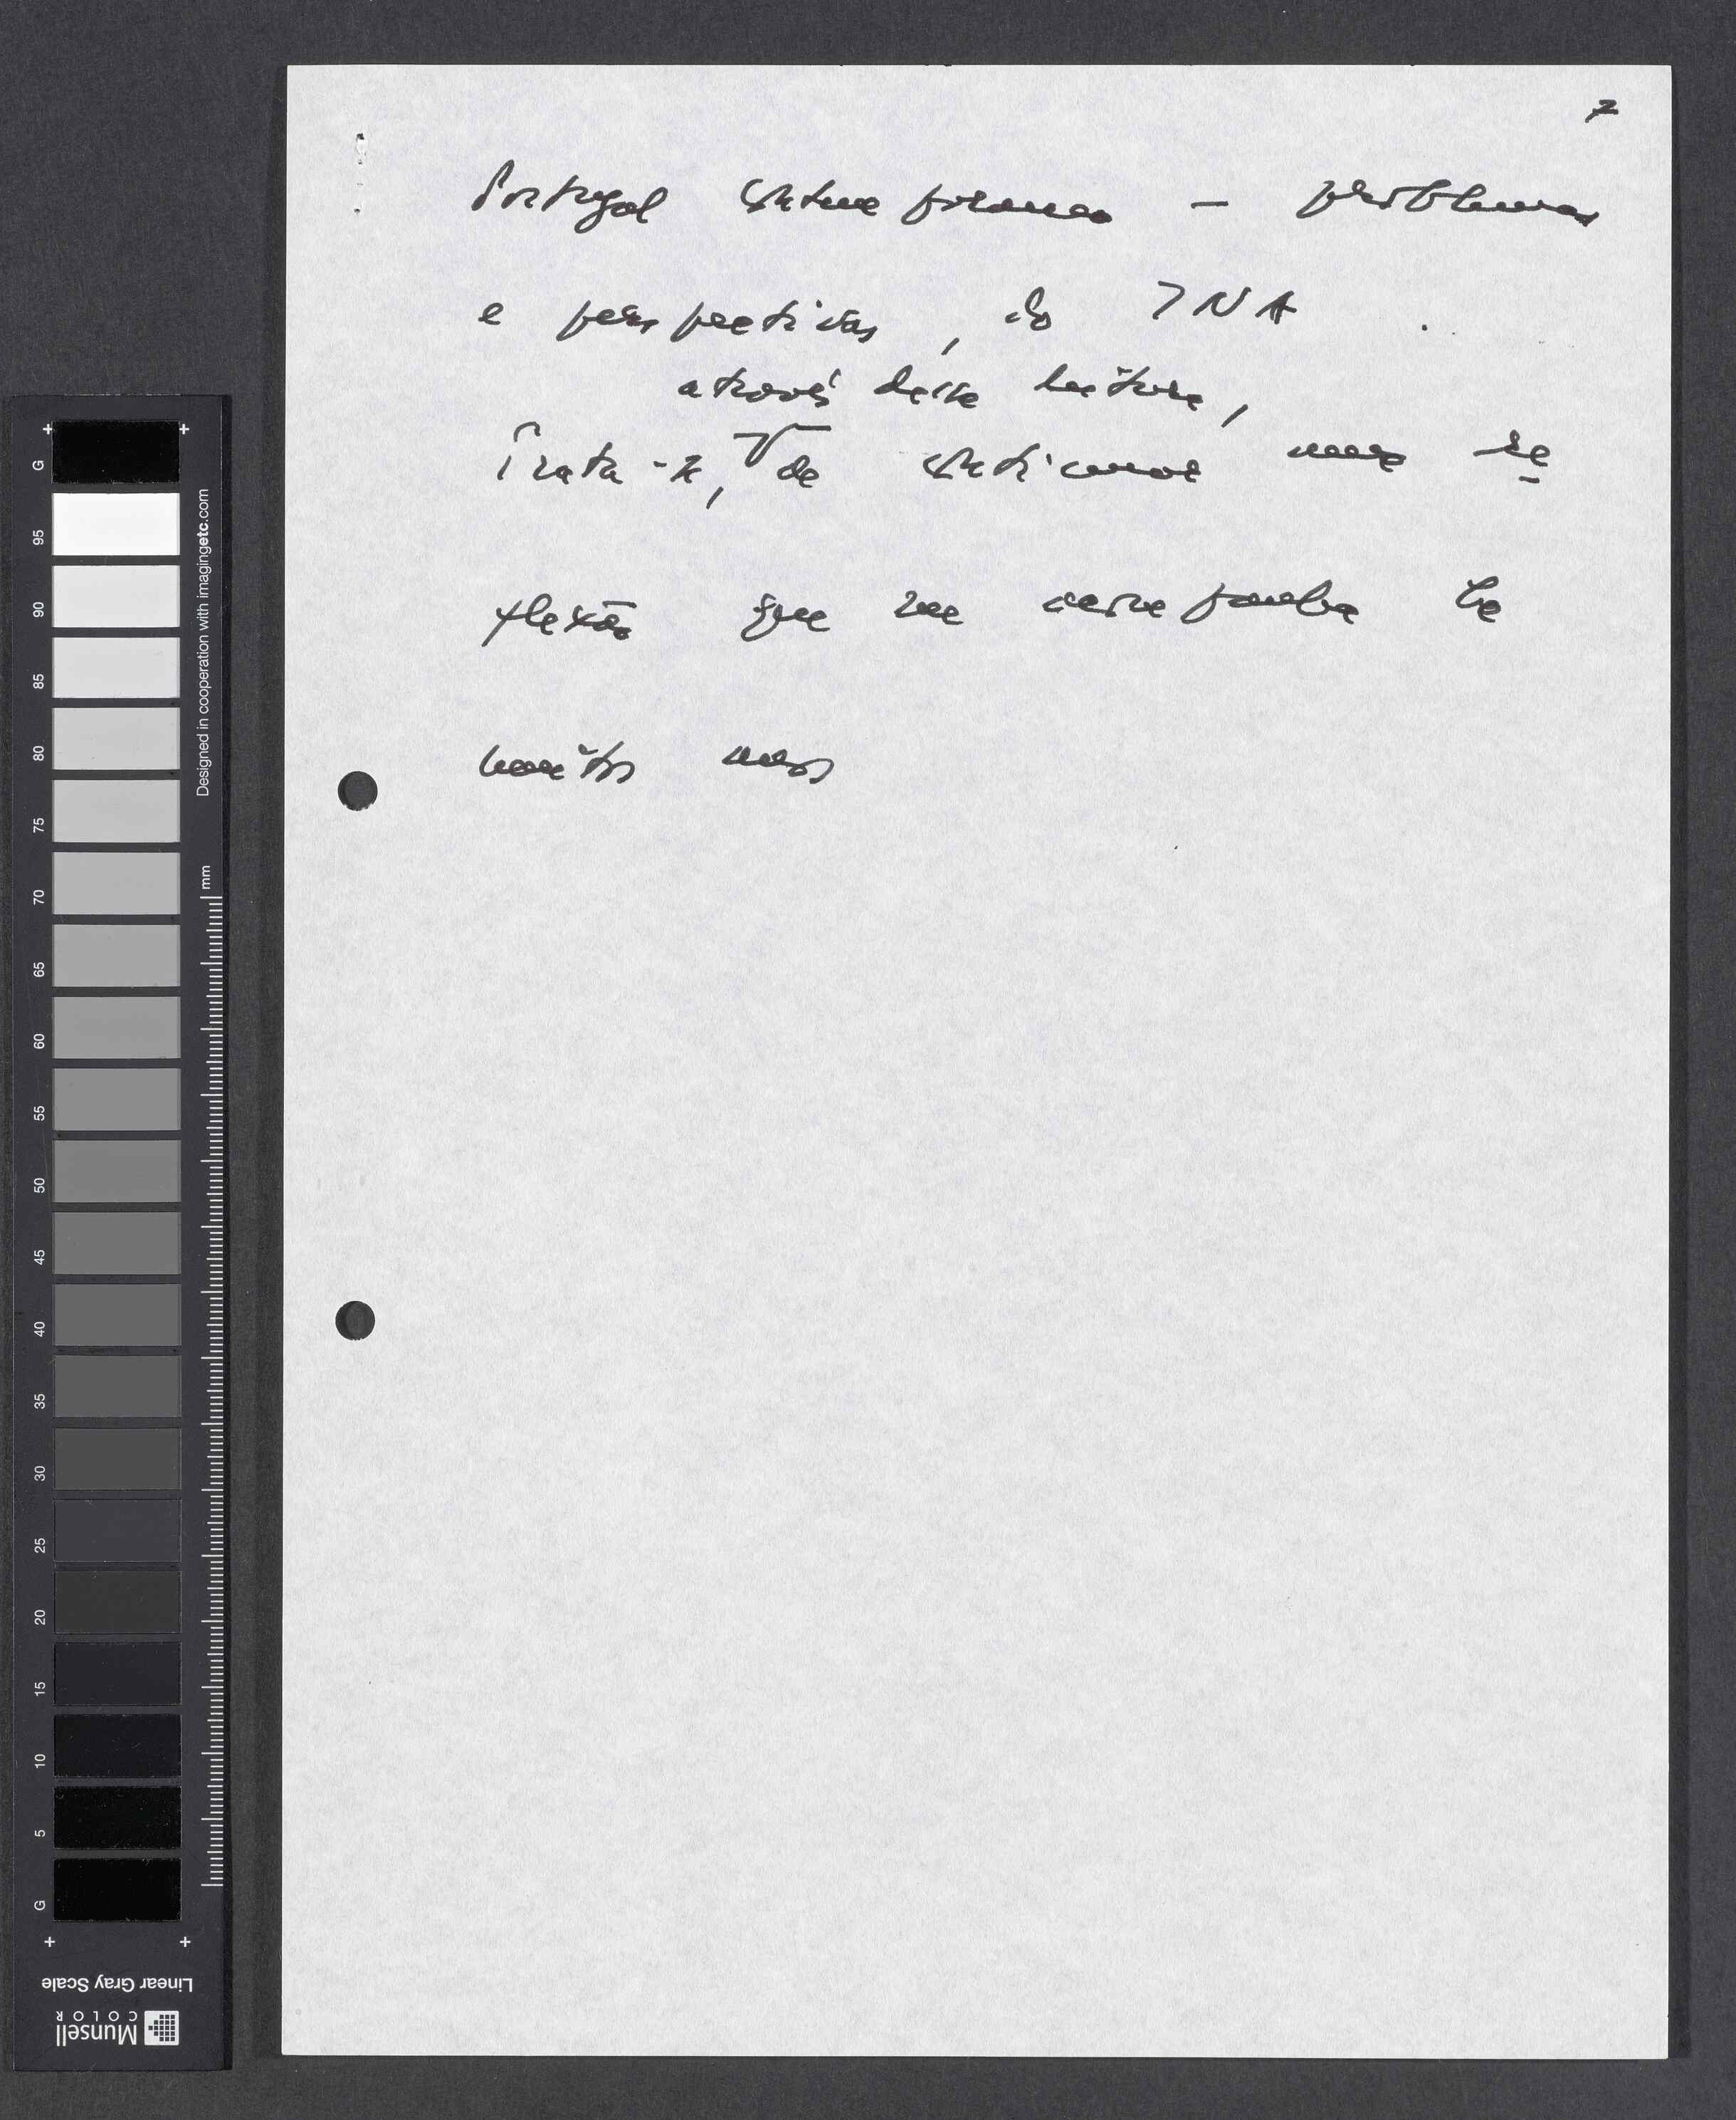 7
Portugal contemporâneo – problemas
e perspectivas, do INA.
através desta leitura,
Trata-se, de continuar uma re
flexão que me acompanha há
muitos anos
G
95
90
85
80
75
70
65
60
55
50
45
40
35
30
25
20
15
10
5
G
Designed in cooperation with imagingetc.com
mm
Linear Gray Scale
Munsell
COLOR